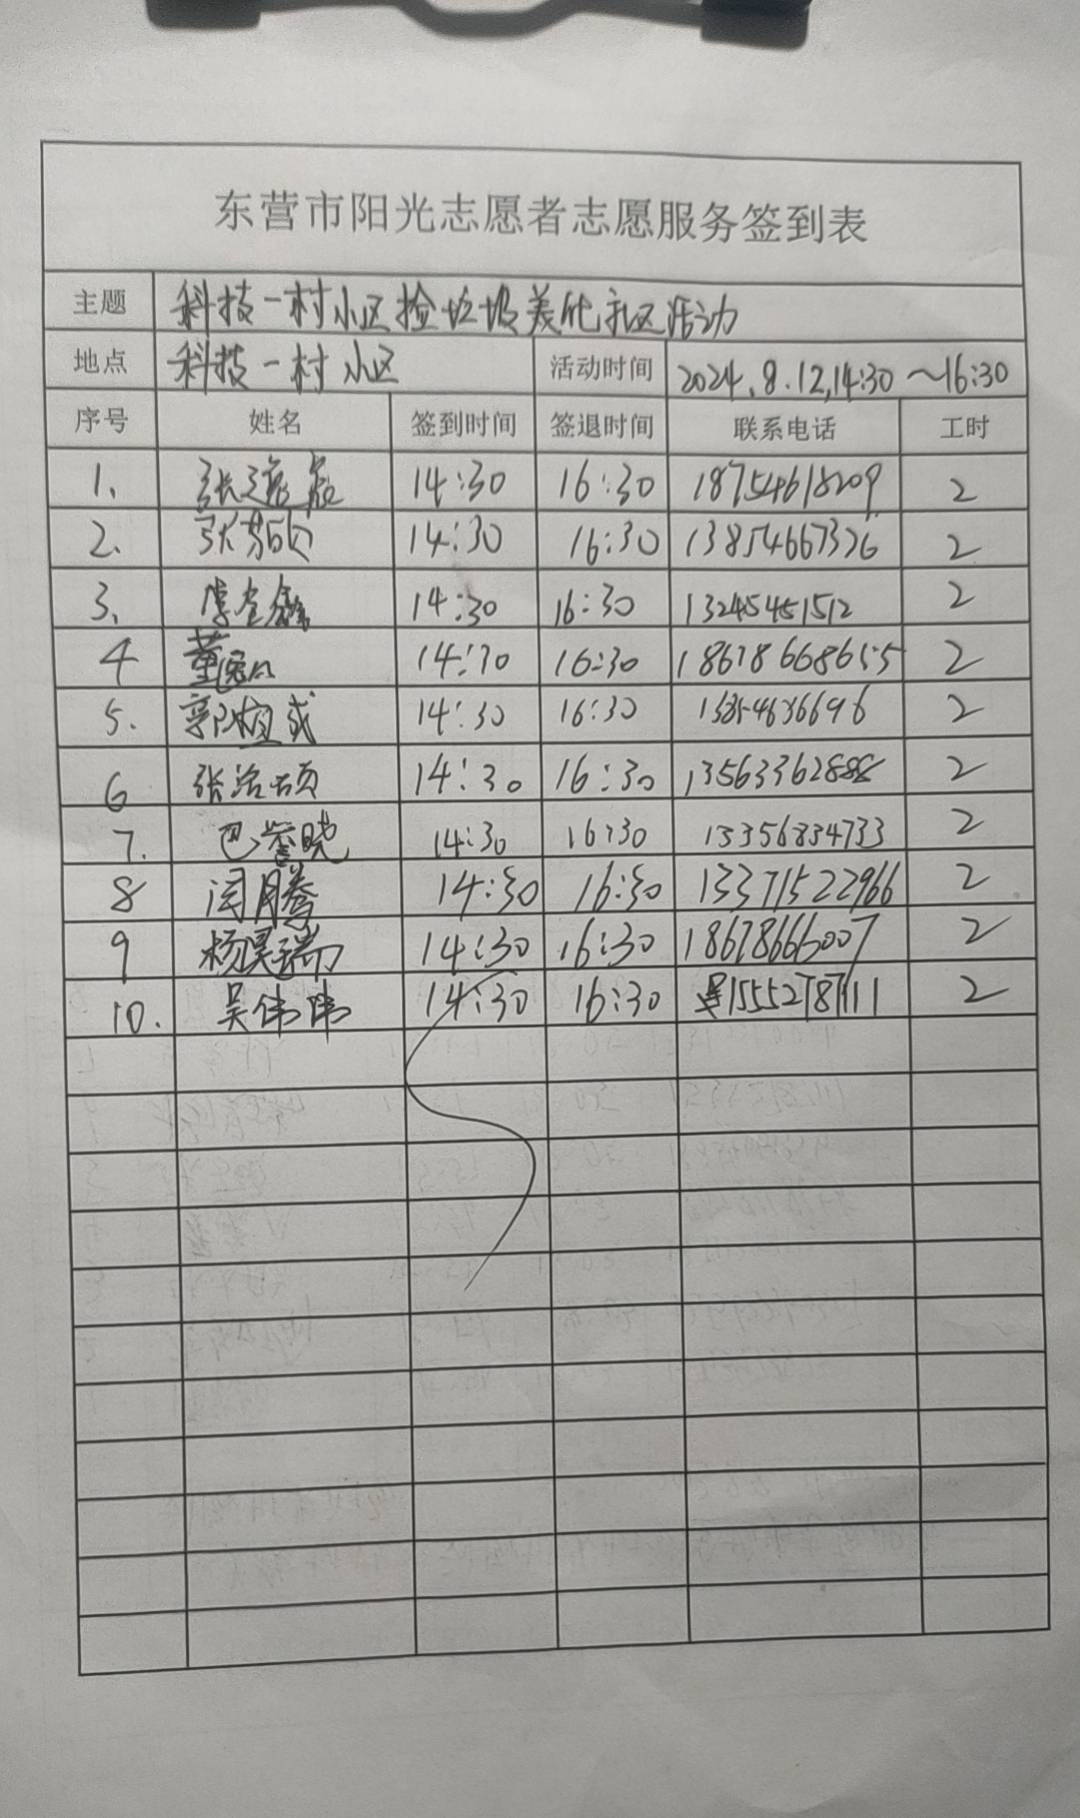 东营市阳光志愿者志愿服务签到表
主题 科技一村小区捡垃圾美化社区活动
地点 科技一村小区 活动时间 2024.8.12,14:30~16:30
序号 姓名 签到时间 签退时间 联系电话 工时
1. 14:30 16:30 18754618209 2
2. 14:30 16:30 13854667326 2
3. 14:30 16:30 13245451512 2
4 14:30 16:30 18678668655 2
5. 14:30 16:30 2
6 14:30 16:30 13563362888 2
7. 巴誉晓 14:30 16:30 15356834733 2
8 闫腾 14:30 16:30 13371522966 2
9 杨昊瑞 14:30 16:30 18678666007 2
10. 吴伟伟 14:30 16:30 15552787111 2